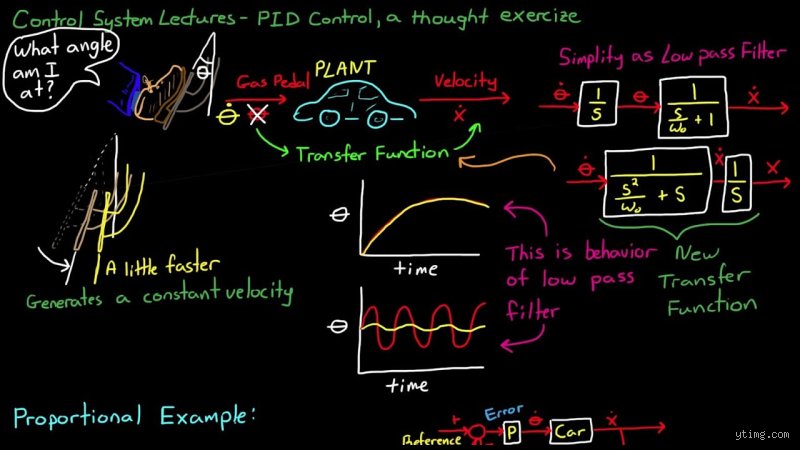 Control System Lectures - PID Control, a thought exercize
What angle
am I
at?
θ
Gas Pedal
θ̇ θ
PLANT
Velocity
ẋ
Transfer Function
Simplify as Low pass Filter
θ̇ 1/S θ 1/(S/ω₀ + 1) ẋ
θ̇ 1/(S²/ω₀ + S) ẋ 1/S x
New
Transfer
Function
A little faster
Generates a constant velocity
θ
time
This is behavior
of low pass
filter
θ
time
Proportional Example:
Reference + - Error P θ̇ Car ẋ
ytimg.com